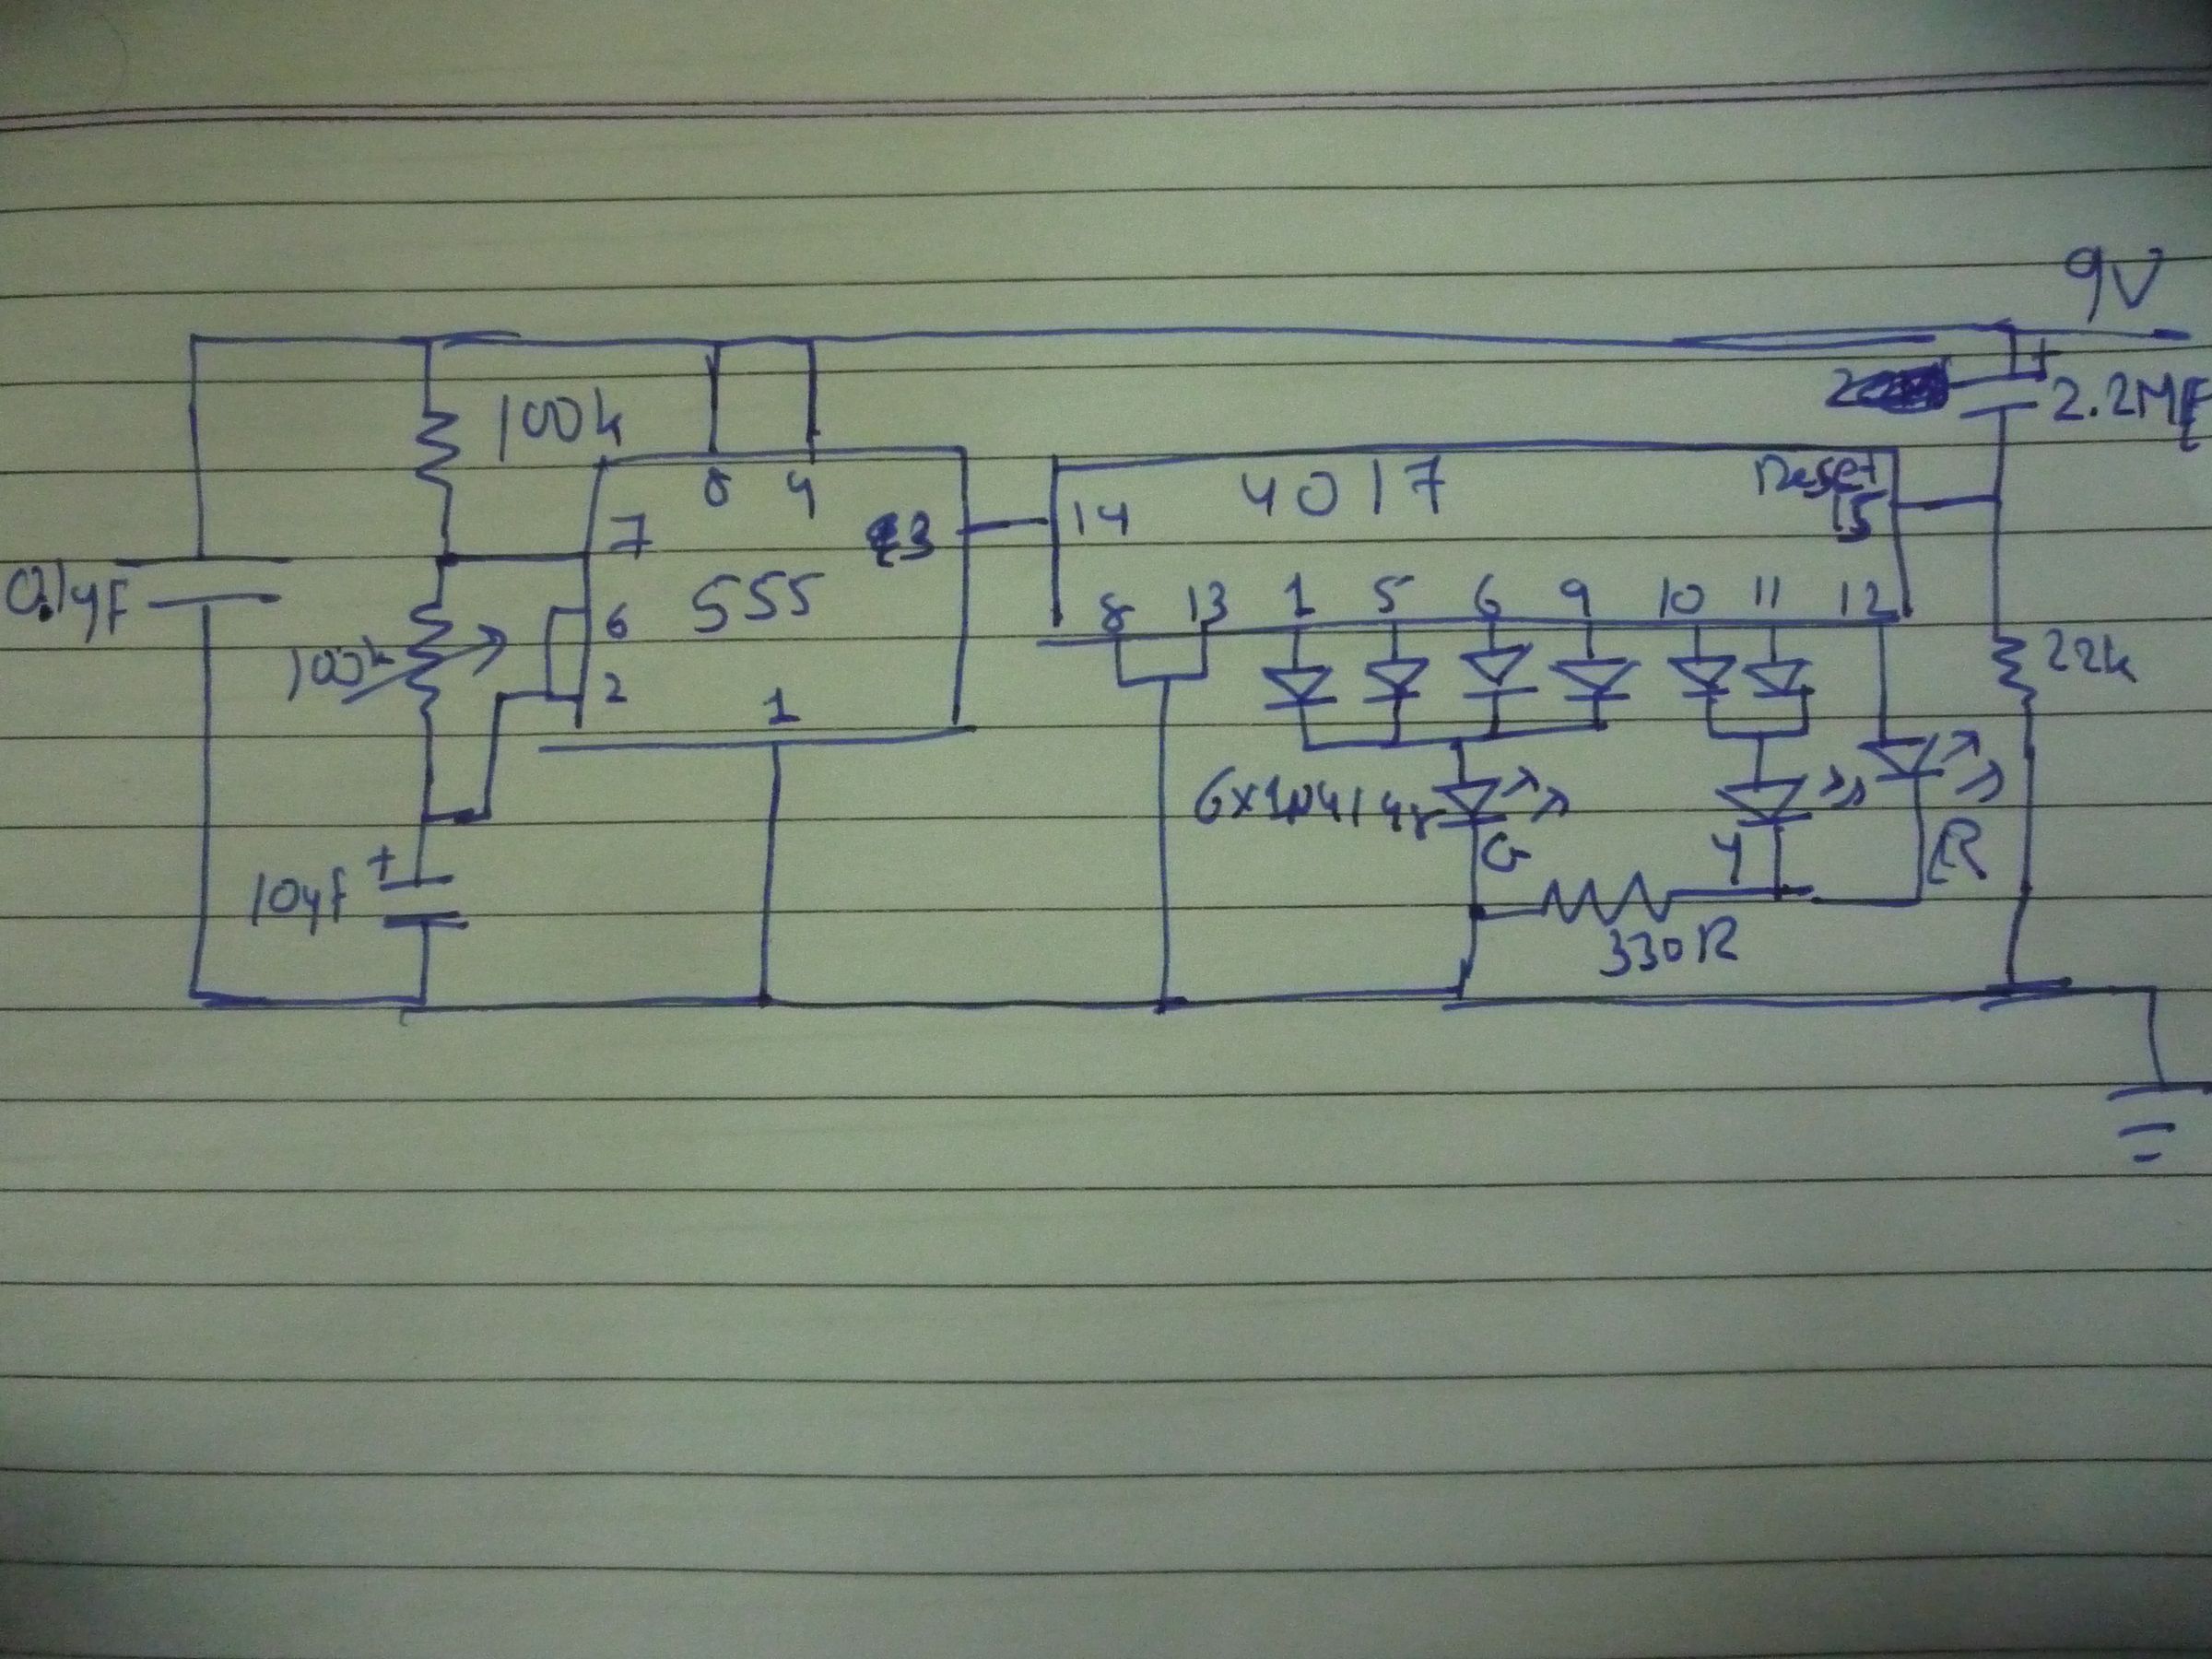 9V
2.2MF
100k
8 4
7
3
14
4017
Reset
15
0.1yF
555
6
2
1
8 13 1 5 6 9 10 11 12
100k
22k
6x1N4148
G
Y
R
10yF
+
+
330R